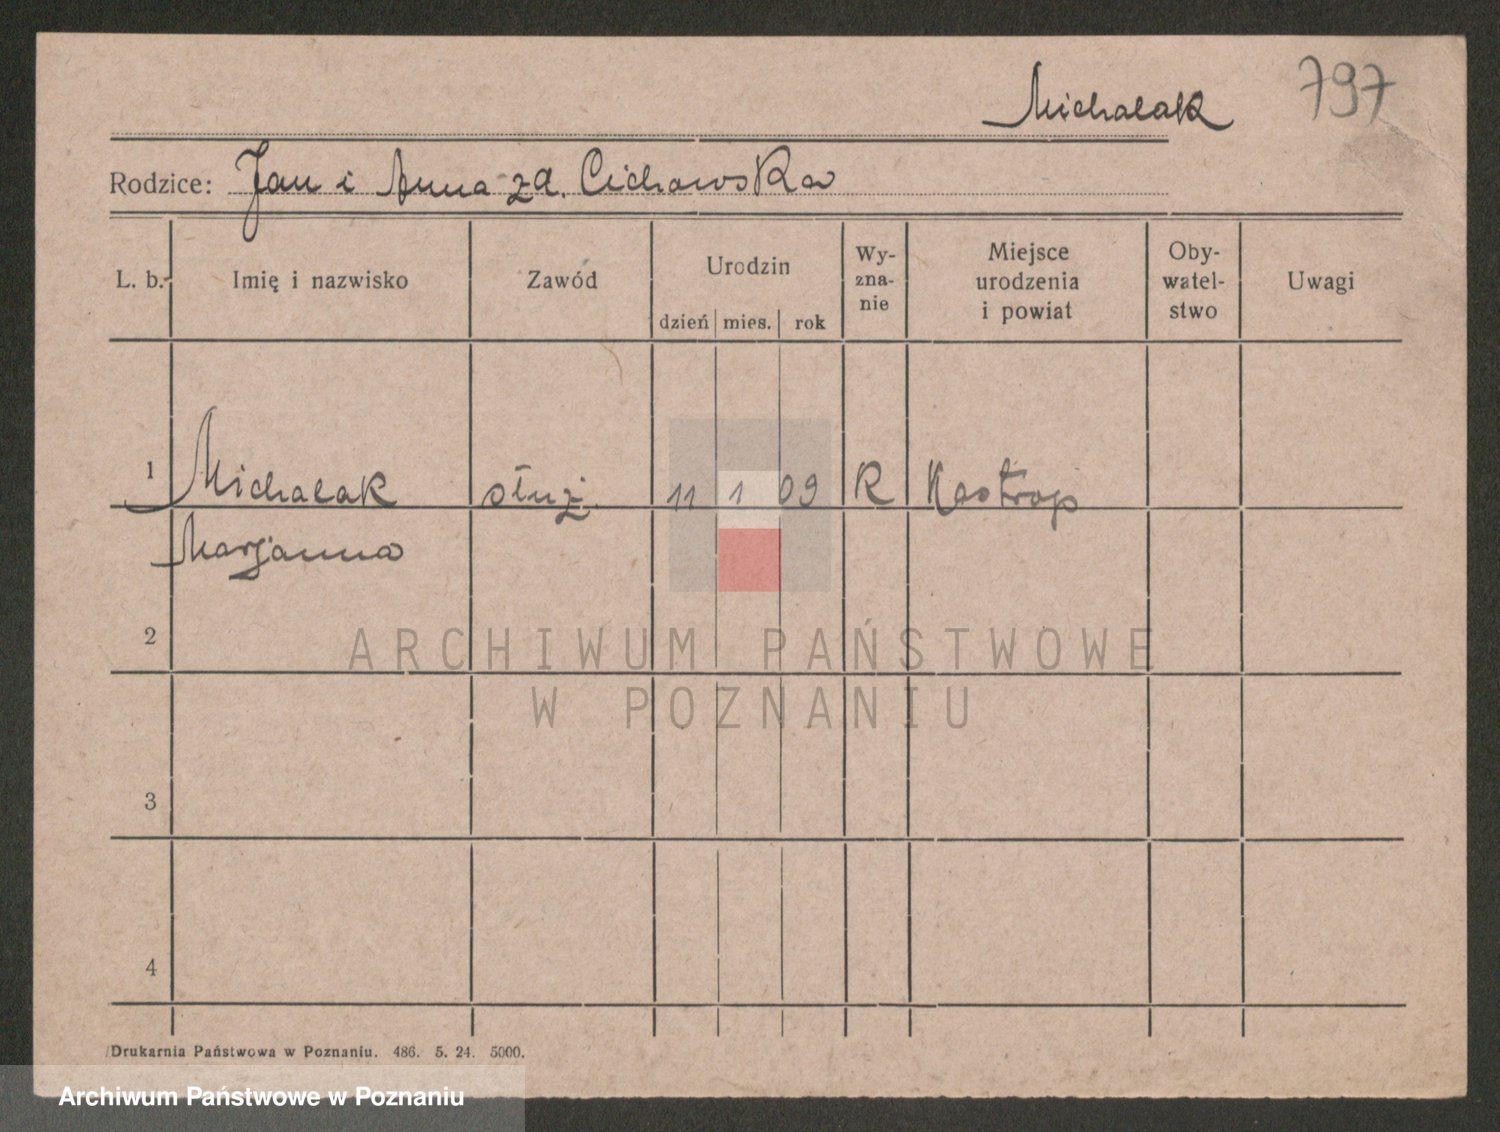 Michalak 797
Rodzice: Jan i Anna zd. Cichowska
L. b. Imię i nazwisko Zawód Urodzin dzień mies. rok Wy-zna-nie Miejsce urodzenia i powiat Oby-watel-stwo Uwagi
1 Michalak służ. 11 1 09 R Kastrop
Marjanna
2
ARCHIWUM PAŃSTWOWE
W POZNANIU
3
4
Drukarnia Państwowa w Poznaniu. 486. 5. 24. 5000.
Archiwum Państwowe w Poznaniu